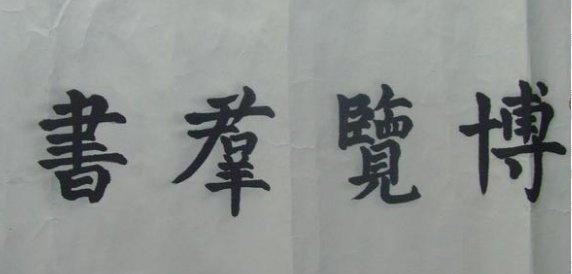 博覽羣書